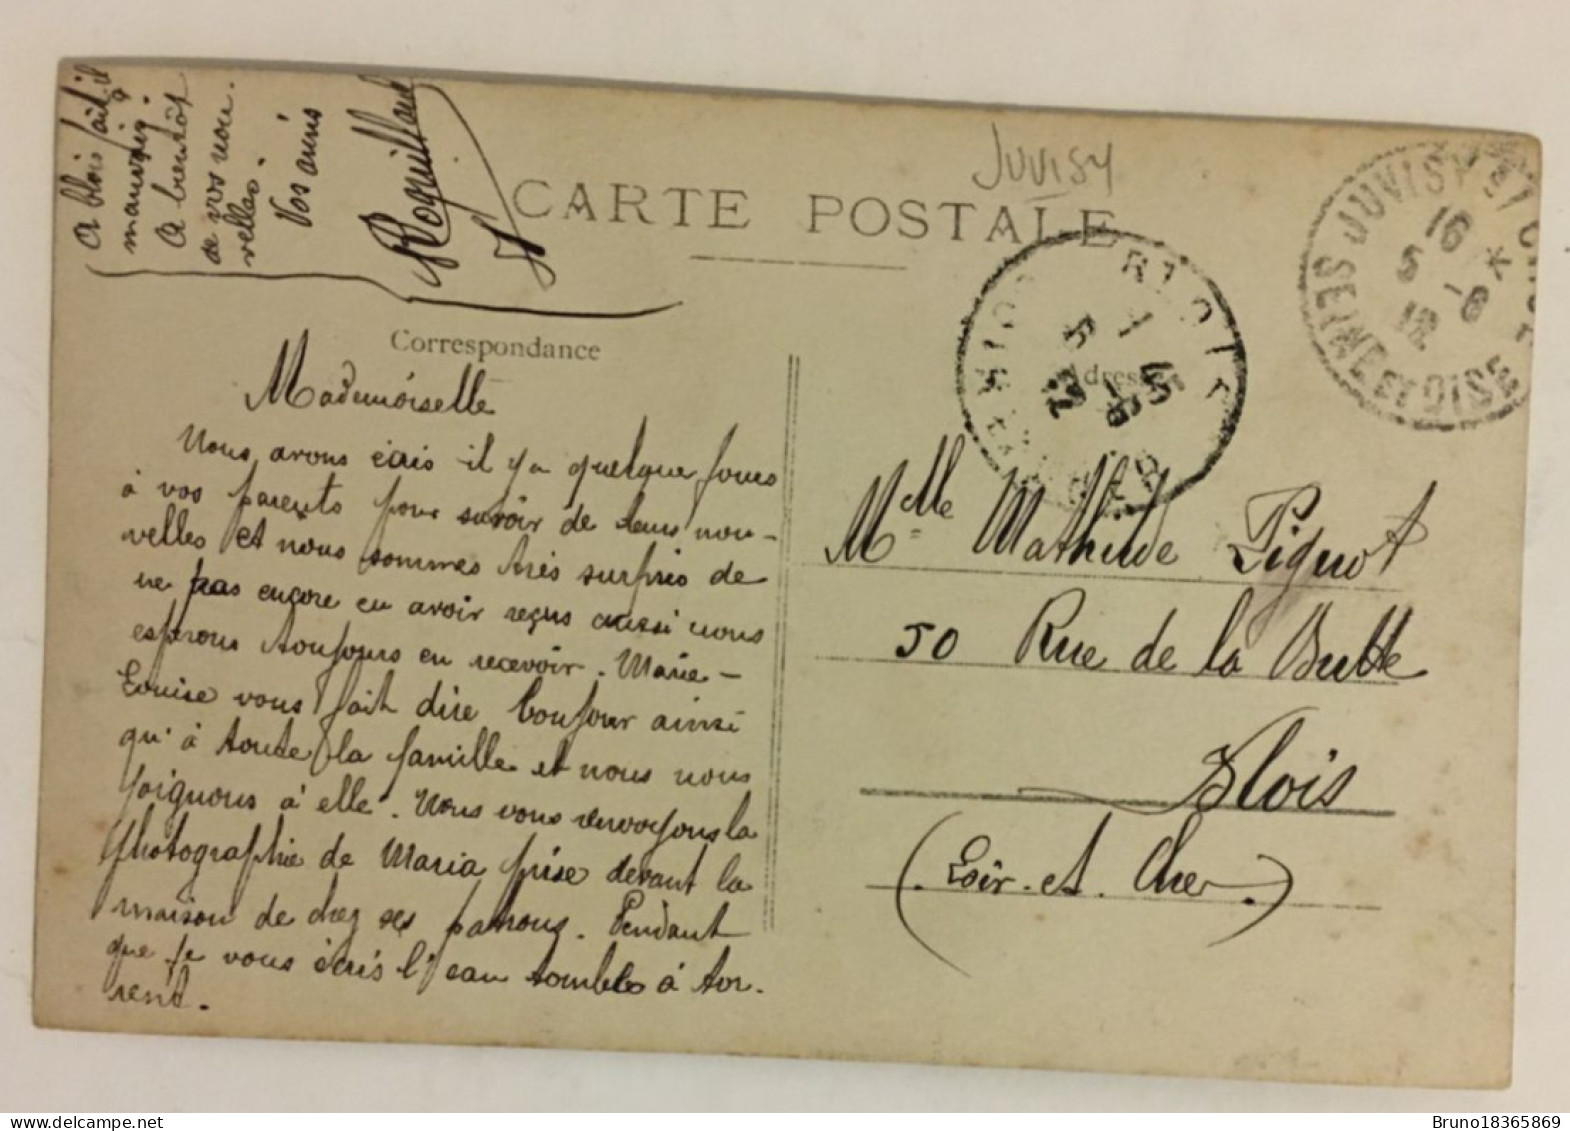 A blois fait-il
mauvais ?
A bientôt
de vos nou-
velles.
Vos amis
Roguillard
JUVISY
CARTE POSTALE
Correspondance
Adresse
JUVISY
SEINE ET OISE
16 *
5 - 6
12
Mademoiselle
Nous avons écris il y a quelque jours
à vos parents pour savoir de leurs nou-
velles et nous sommes très surpris de
ne pas encore en avoir reçus aussi nous
esperons toujours en recevoir. Marie-
Louise vous fait dire bonjour ainsi
qu'à toute la famille et nous nous
joignons à elle. Nous vous envoyons la
photographie de Maria prise devant la
maison de chez ses patrons. Pendant
que je vous écris l'eau tombe à tor-
rent.
Melle Mathilde Pignot
50 Rue de la Butte
Blois
(Loir-et-Cher.)
Bruno18365869